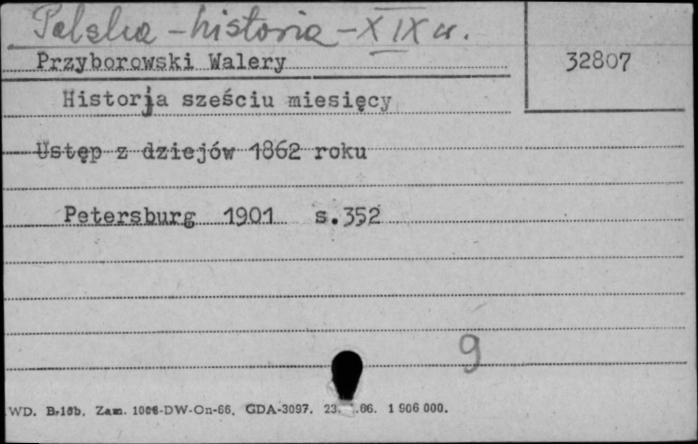 Polska - historia - XIX w.
Przyborowski Walery
32807
Historja sześciu miesięcy
Ustęp z dziejów 1862 roku
Petersburg 1901 s.352
9
WD. B-16b. Zam. 1008-DW-On-66. GDA-3097. 23. .66. 1 906 000.